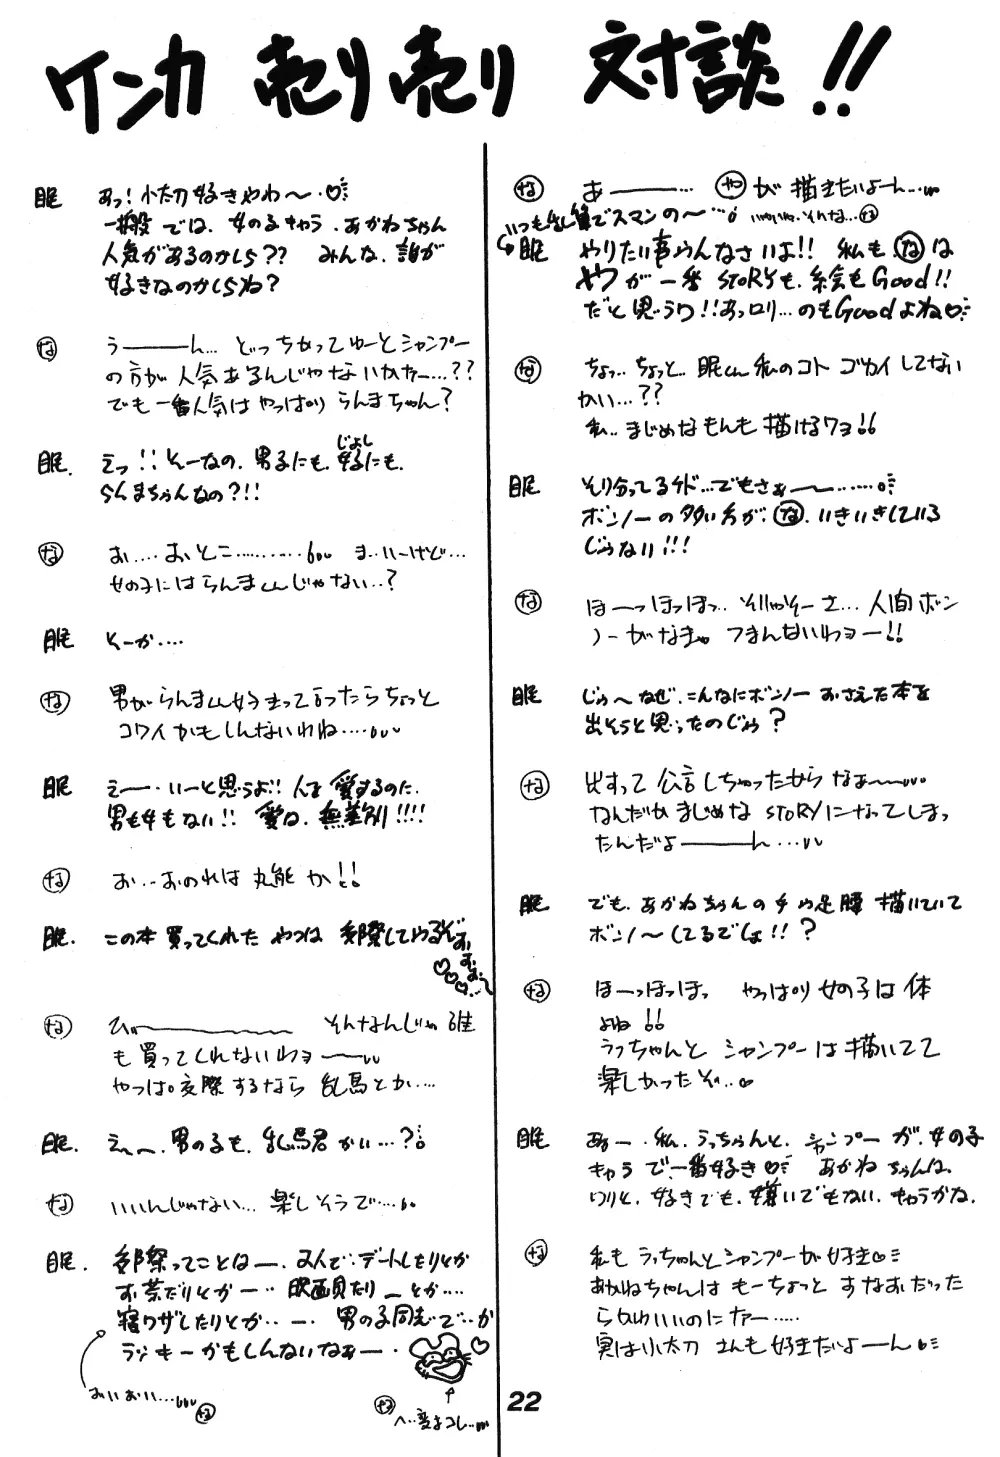 ケンカ 売り売り 対談!!
眠 あっ!小太刀好きやわ〜・♡
一般では、女の子キャラ、あかねちゃん
人気があるのかしら?? みんな、誰が
好きなのかしらね?
な うーーーん… どっちかってゆーとシャンプー
の方が人気あるんじゃないかなー…??
でも一番人気はやっぱりらんまちゃん?
眠. えっ!!そーなの、男子にも、女子にも、
じょし
らんまちゃんなの?!!
な お‥‥おとこ‥‥‥‥ ま‥いーけど…
女の子にはらんまくんじゃない‥?
眠 そーか‥‥
な 男がらんまくん好きって言ったらちょっと
コワイかもしんないわね‥‥
眠 えー・・いーと思うよ!!人を愛するのに、
男も女もない!! 愛は、無差別!!!!
な お‥‥おのれは九能か!!
眠. この本買ってくれたやつは 交際してやるぞ
な ひぃーーーー そんなんじゃ誰
も買ってくれないわヨーー
やっぱ。交際するなら 乱馬とか‥‥
眠. え〜〜、男の子も、乱馬君かい…?
な いいんじゃない… 楽しそうで…
眠. 交際ってことはー、2人で・デートしたりとか
お茶だりとかー‥ 映画見たり_とか‥‥
寝ワザしたりとか‥ー、男の子同志で‥か
ラッキーかもしんないなぁー・・
おいおい… な
な へ‥変なコレ‥
な あーーー… やが描きたいよーん…
いつも乱筆でスマンの〜… いやいや、そんな… な
眠 やりたい事やんなさいよ!! 私もなは
やが一番 STORYも、絵もGood!!
だと思うワ!!あっロリ…のもGoodよね♡
な ちょっ‥ちょっと‥眠くん私のコト ゴカイしてない
かい…??
私‥まじめなもんも描けるワヨ!!
眠 そり分ってるケド…でもさぁー〜……
ボンノーの多い方が、な、いきいきしている
じゃない!!!
な ほーっほっほっ‥ そりゃそーさ… 人間ボン
ノーがなきゃ つまんないわヨー!!
眠 じゃ〜なぜ、こんなにボンノーおさえた本を
出そうと思ったのじゃ?
な 出すって公言しちゃったから なぁ〜〜
なんだかまじめなSTORYになってしまっ
たんだよーーーん‥‥
眠 でも、あかねちゃんの手や足腰 描いていて
ボンノ〜してるでしょ!!?
な ほーっほっほっ やっぱり女の子は体
よね!!
うっちゃんと シャンプーは描いてて
楽しかったぞ‥
眠 あぁー、私、うっちゃんと、シャンプーが、女の子
キャラで一番好き♡ あかねちゃんは、
わりと、好きでも、嫌いでもない、キャラかな、
な 私もうっちゃんとシャンプーが好き♡
あかねちゃんは もーちょっと すなおだった
らかわいいのにナァー‥‥
実は小太刀さんも好きだよーん♡
22